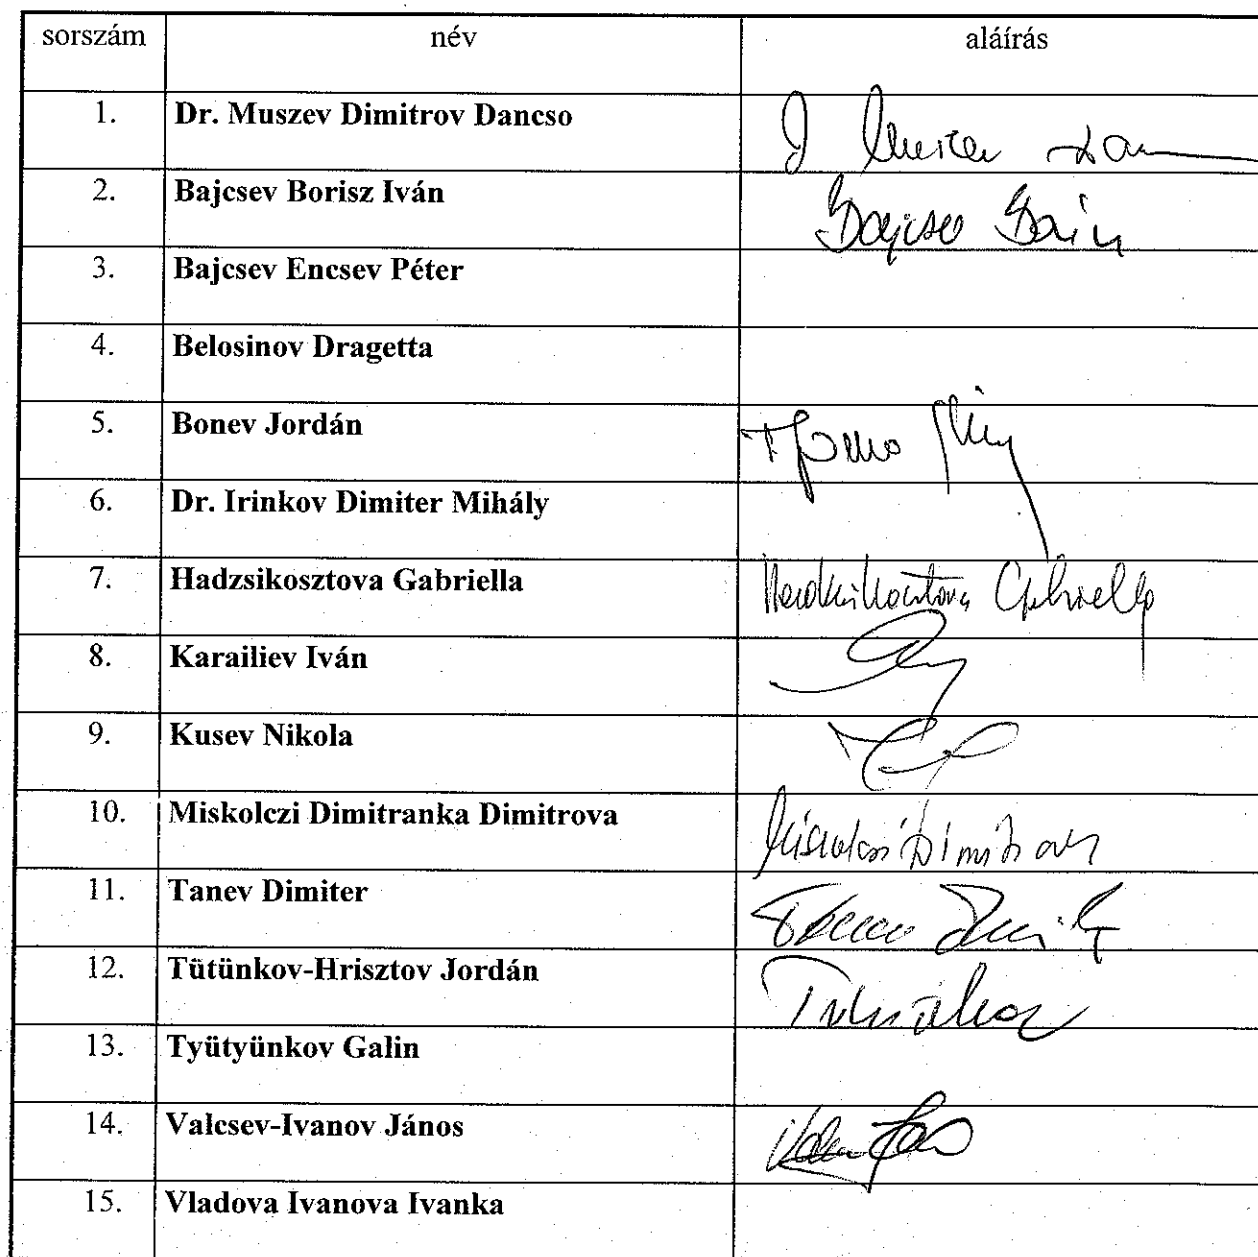 sorszám név aláírás
1. Dr. Muszev Dimitrov Dancso
2. Bajcsev Borisz Iván
3. Bajcsev Encsev Péter
4. Belosinov Dragetta
5. Bonev Jordán
6. Dr. Irinkov Dimiter Mihály
7. Hadzsikosztova Gabriella Hadzsikosztova Gabriella
8. Karailiev Iván
9. Kusev Nikola
10. Miskolczi Dimitranka Dimitrova
11. Tanev Dimiter
12. Tütünkov-Hrisztov Jordán
13. Tyütyünkov Galin
14. Valcsev-Ivanov János
15. Vladova Ivanova Ivanka